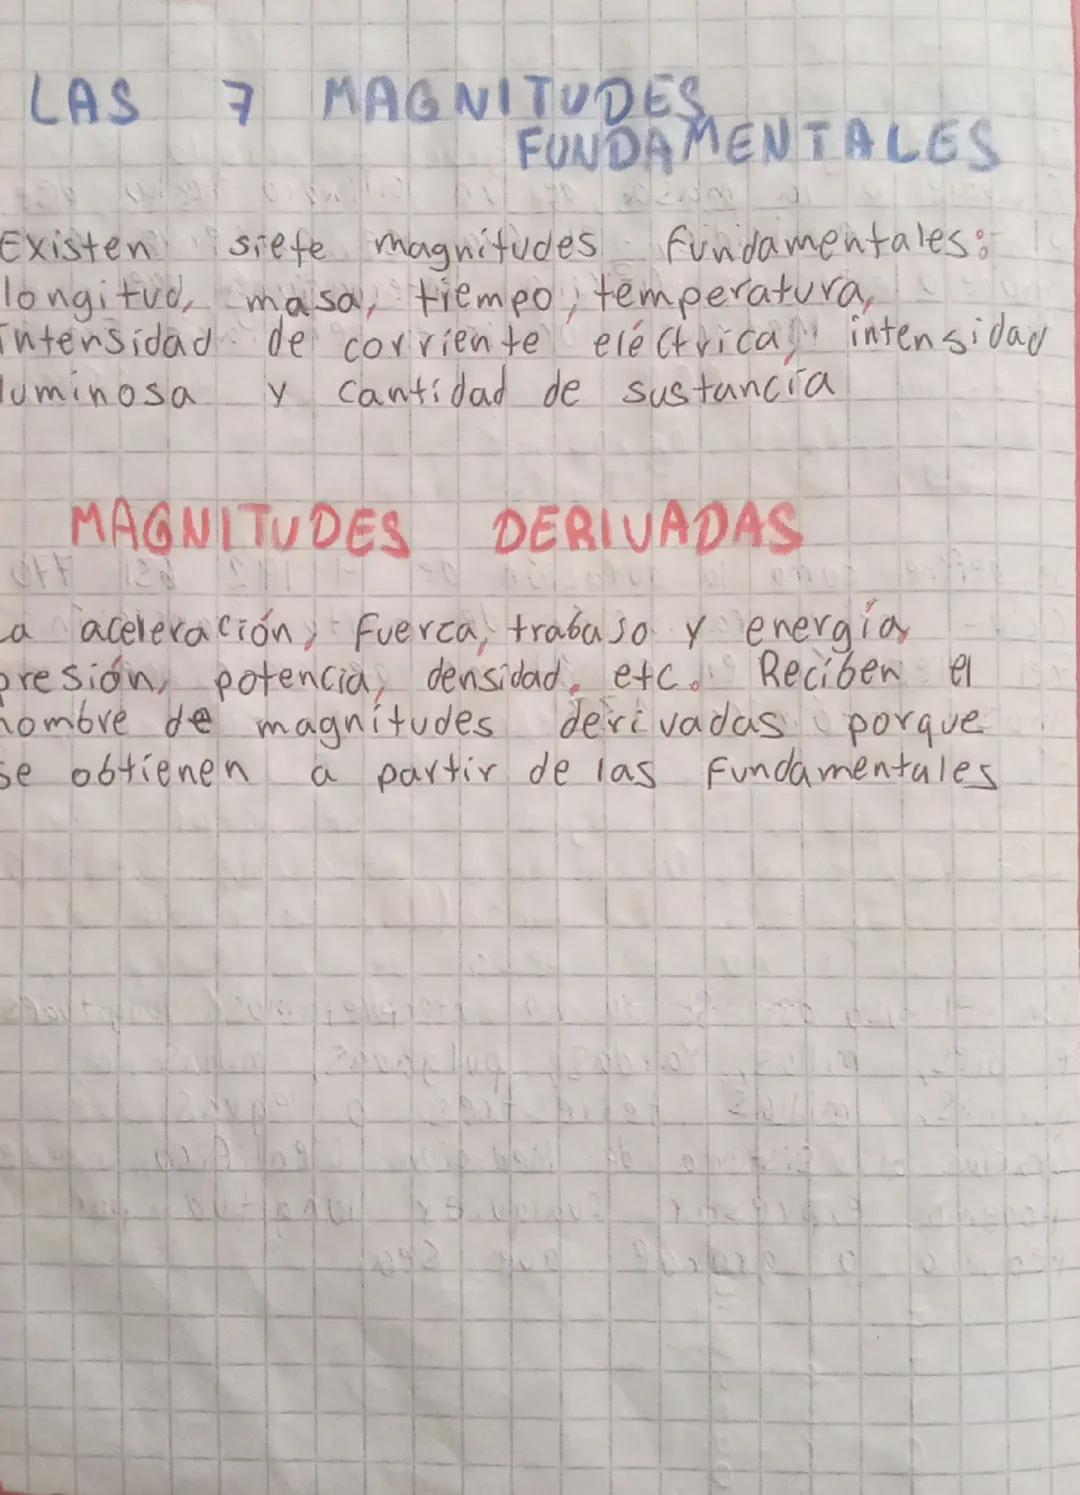 LAS 7 MAGNITUDES
FUNDAMENTALES
Existen siete magnitudes fundamentales:
longitud, masa, tiempo, temperatura,
intensidad de corriente eléctrica, intensidad
luminosa y cantidad de sustancia
MAGNITUDES DERIVADAS
La aceleración, fuerca, trabajo y energía,
presión, potencia, densidad, etc. Reciben el
nombre de magnitudes derivadas porque
se obtienen a partir de las fundamentales